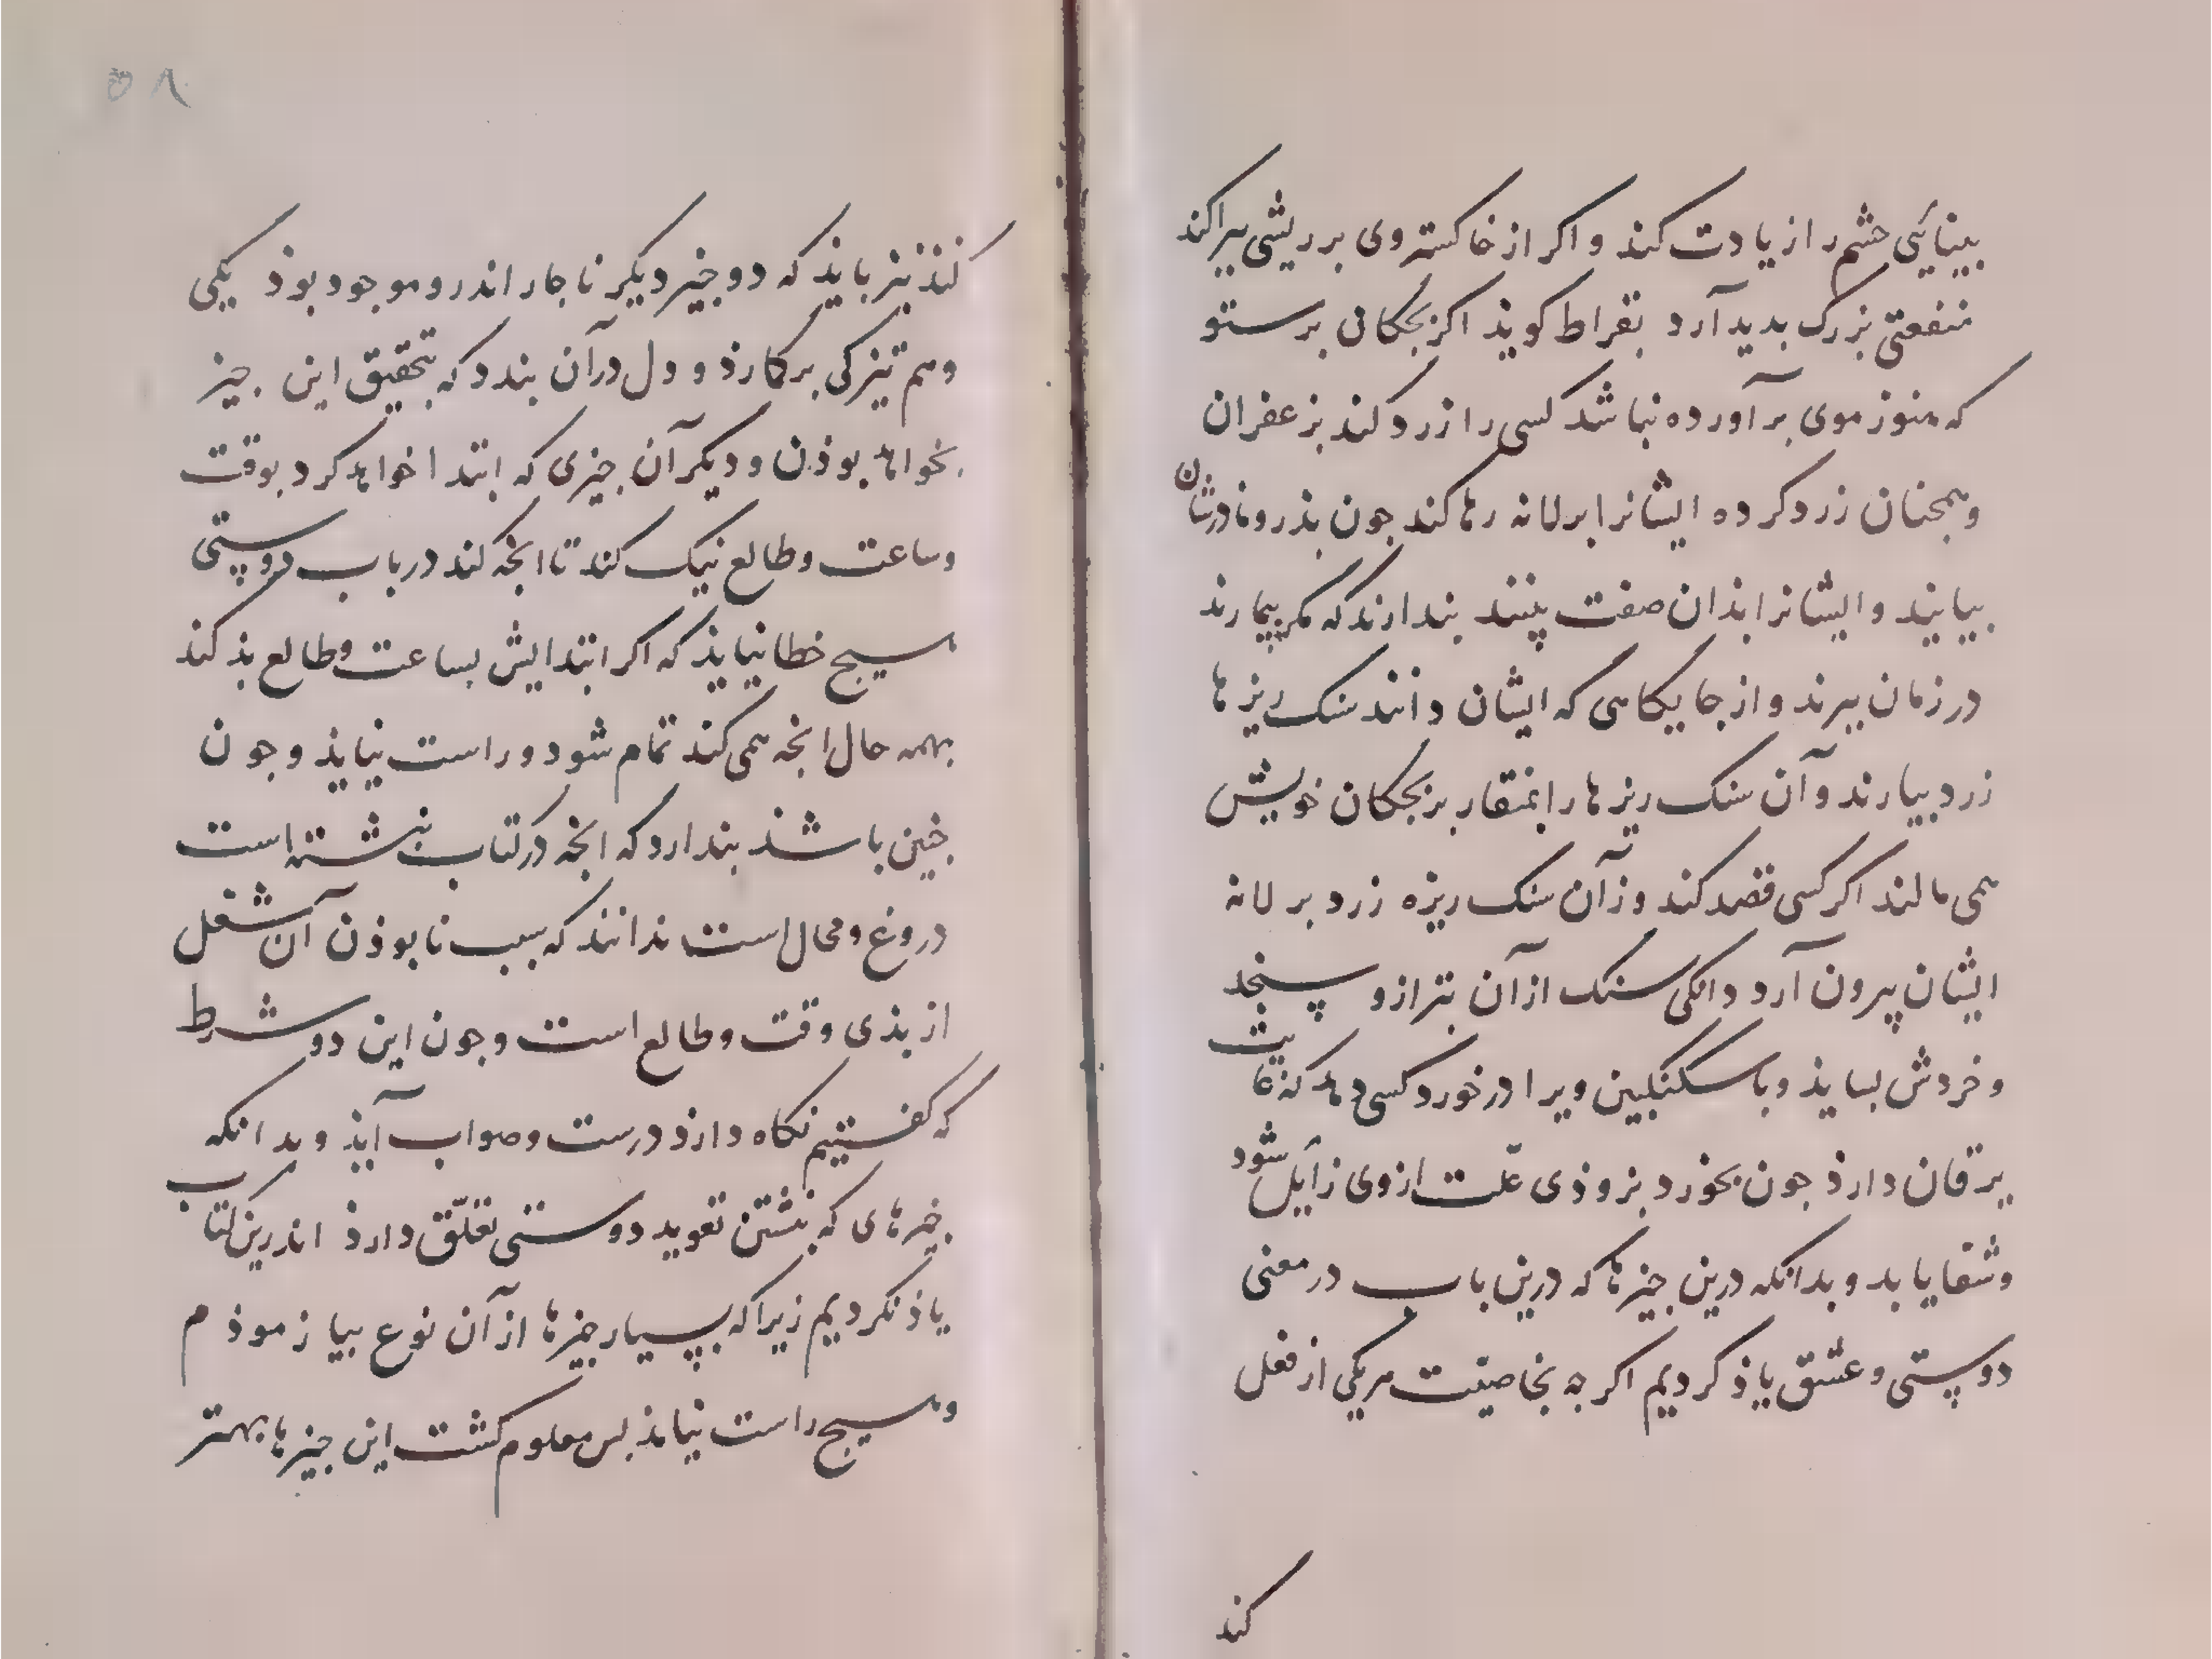 بینائی جشم را زیادت کند و اکر از خاکستر وی بر ریشی براکند
منفعتی بزرک بدید آرد بقراط کویذ اکر بجکان برستو
که هنوز موی بر آورده نباشد کسی را زرد کند بزعفران
و همجنان زرد کرده ایشانرا بر لانه رها کند جون بذر و مادرشان
بیایند و ایشانرا بذان صفت بینند بندارند که مکر بیمارند
در زمان ببرند و از جایکاهی که ایشان دانند سنک ریزها
زرد بیارند و آن سنک ریزها را بمنقار بر بجکان خویش
همی مالند اکر کسی قصد کند و زآن سنک ریزه زرد بر لانه
ایشان بیرون آرد دانکی سنک از آن بترازو بسنجد
و خردش بسایذ و با سکنکبین ویرا در خورد کسی دهد که غایت
یرقان دارذ جون بخورد بزوذی علّت ازوی زایل شود
و شفا یابد و بدانکه درین جیزها که درین باب در معنی
دوستی و عشق یاذ کردیم اکر جه بخاصیت هر یکی از فعل
کند
۵۸
کنذ نیز بایذ که دو جیز دیکر ناجار اندرو موجود بوذ یکی
وهم تیزکی برکارذ و دل در آن بندد که بتحقیق این جیز
بخواهد بوذن و دیکر آن جیزی که ابتدا خواهد کرد بوقت
و ساعت و طالع نیک کند تا انجه کند در باب دوستی
هیسج خطا نیایذ که اکر ابتدایش بساعت و طالع بذ کند
بهمه حال انجه همی کند تمام شود و راست نیایذ و جون
جنین باشذ بندارد که انجه در کتاب نبشته است
دروغ و محال است ندانند که سبب نابوذن آن شغل
از بذی وقت و طالع است و جون این دو شرط
که کفتیم نکاه دارذ درست و صواب آیذ و بدانکه
جیزهای که بنشتن تعوید دوستی تعلّق دارذ اندرین کتاب
یاذ نکردیم زیرا که بسیار جیزها از آن نوع بیازموذم
و هیسج راست نیامذ بس معلوم کشت این جیزها بهتر